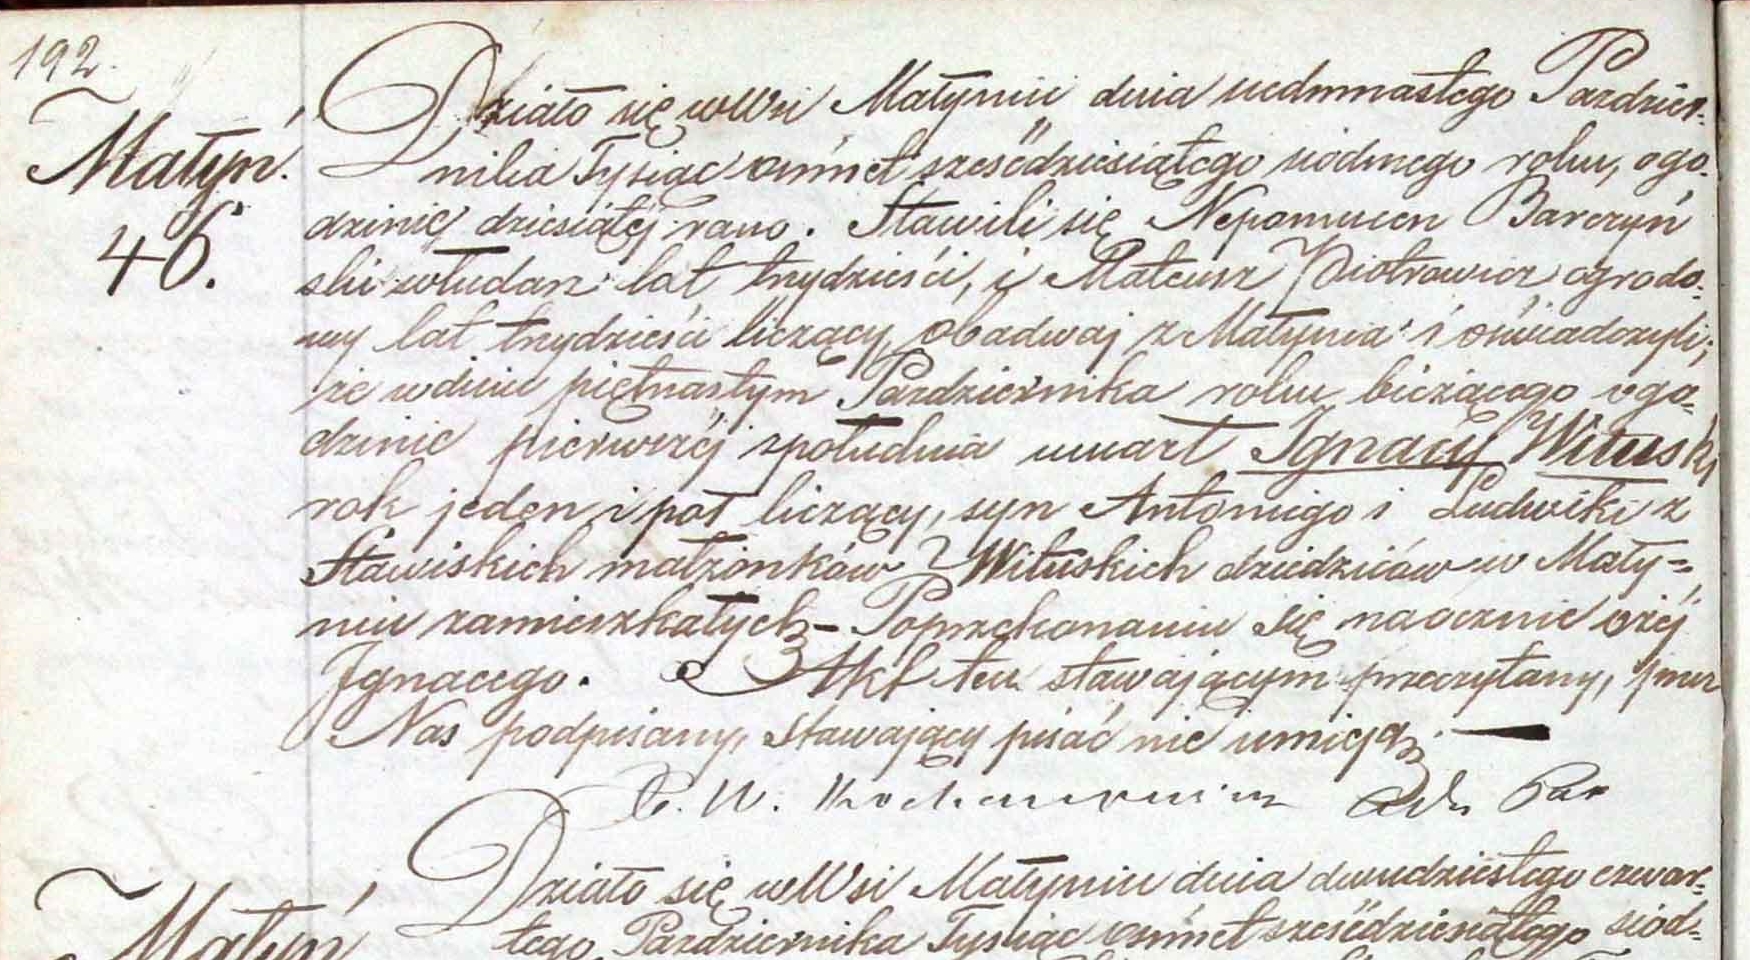 192.
Małyń.
46.
Działo się w Wsi Małyniu dnia siedmnastego Pazdzier-
nika Tysiąc osmset sześćdziesiątego siodmego roku, o go-
dzinie dziesiątéj rano. Stawili się Nepomucen Barczyń
ski włudarz lat trzydzieści, i Mateusz Piotrowicz ogrodo-
wy lat trzydzieści liczący, obadwaj z Małynia i oświadczyli;
że w dniu piętnastym Pazdziernika roku bieżącego o go-
dzinie pierwszéj z południa umarł Ignacy Wituski
rok jeden i poł liczący, syn Antoniego i Ludwiki z
Stawiskich małżonków Wituskich dziedziców w Mały=
niu zamieszkałych – Po przekonaniu się naocznie o zejściu
Ignacego. Akt ten stawającym przeczytany, przez
Nas podpisany, stawający pisać nie umieją. —
X. W.
Działo się w Wsi Małyniu dnia dwudziestego czwar=
Małyń
tego Pazdziernika Tysiąc osmset sześćdziesiątego siód-